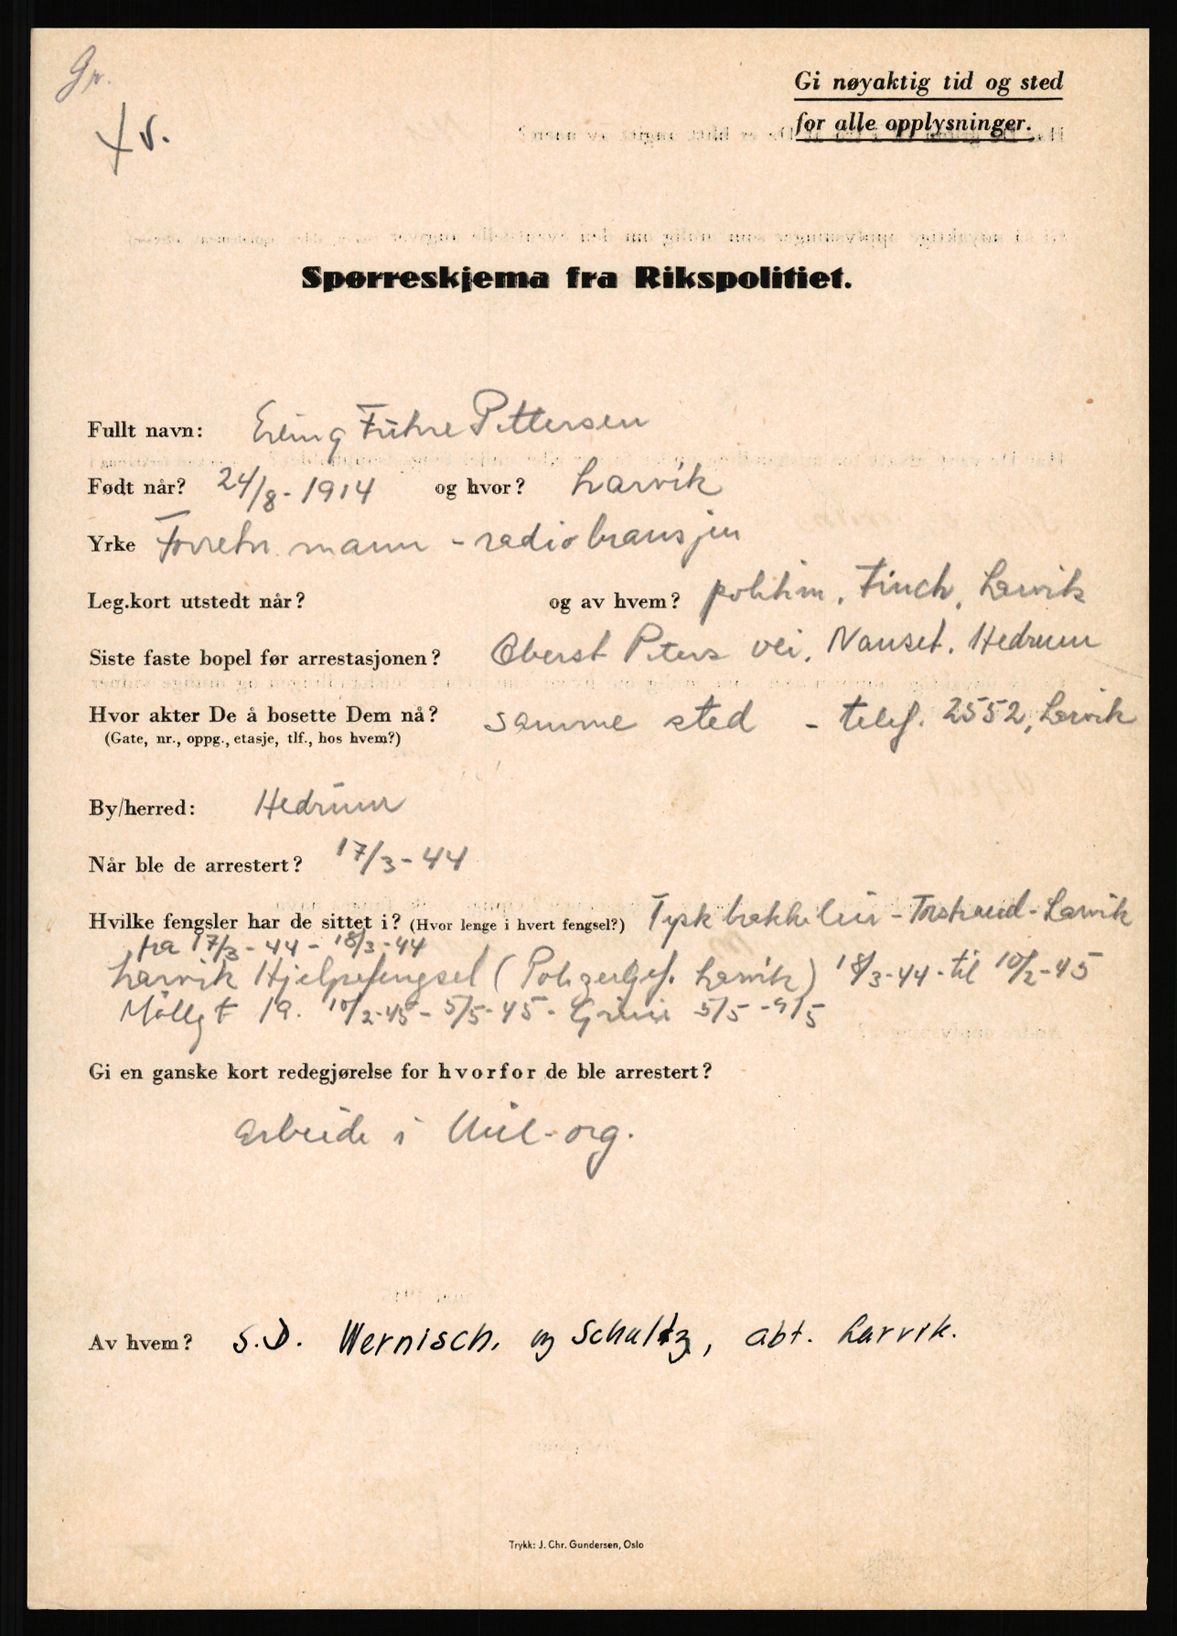 Gr.
v.
Gi nøyaktig tid og sted
for alle opplysninger.
Spørreskjema fra Rikspolitiet.
Fullt navn: Erling Führe Pettersen
Født når? 24/8-1914 og hvor? Larvik
Yrke Forretn. mann - radiobransjen
Leg.kort utstedt når? og av hvem? politim. Finch, Larvik
Siste faste bopel før arrestasjonen? Oberst Peters vei, Nanset. Hedrum
Hvor akter De å bosette Dem nå? samme sted - telef. 2552, Larvik
(Gate, nr., oppg., etasje, tlf., hos hvem?)
By/herred: Hedrum
Når ble de arrestert? 17/3-44
Hvilke fengsler har de sittet i? (Hvor lenge i hvert fengsel?) Tysk - Torstrand - Larvik
fra 17/3-44 - 18/3-44
Larvik Hjelpefengsel ( Larvik) 18/3-44 - til 10/2-45
Møllgt 19. 10/2-45 - 5/5-45 - Grini 5/5 - 9/5
Gi en ganske kort redegjørelse for hvorfor de ble arrestert?
arbeide i Mil-org.
Av hvem? S.D. Wernisch, og Schultz, abt. Larvik.
Trykk: J. Chr. Gundersen, Oslo